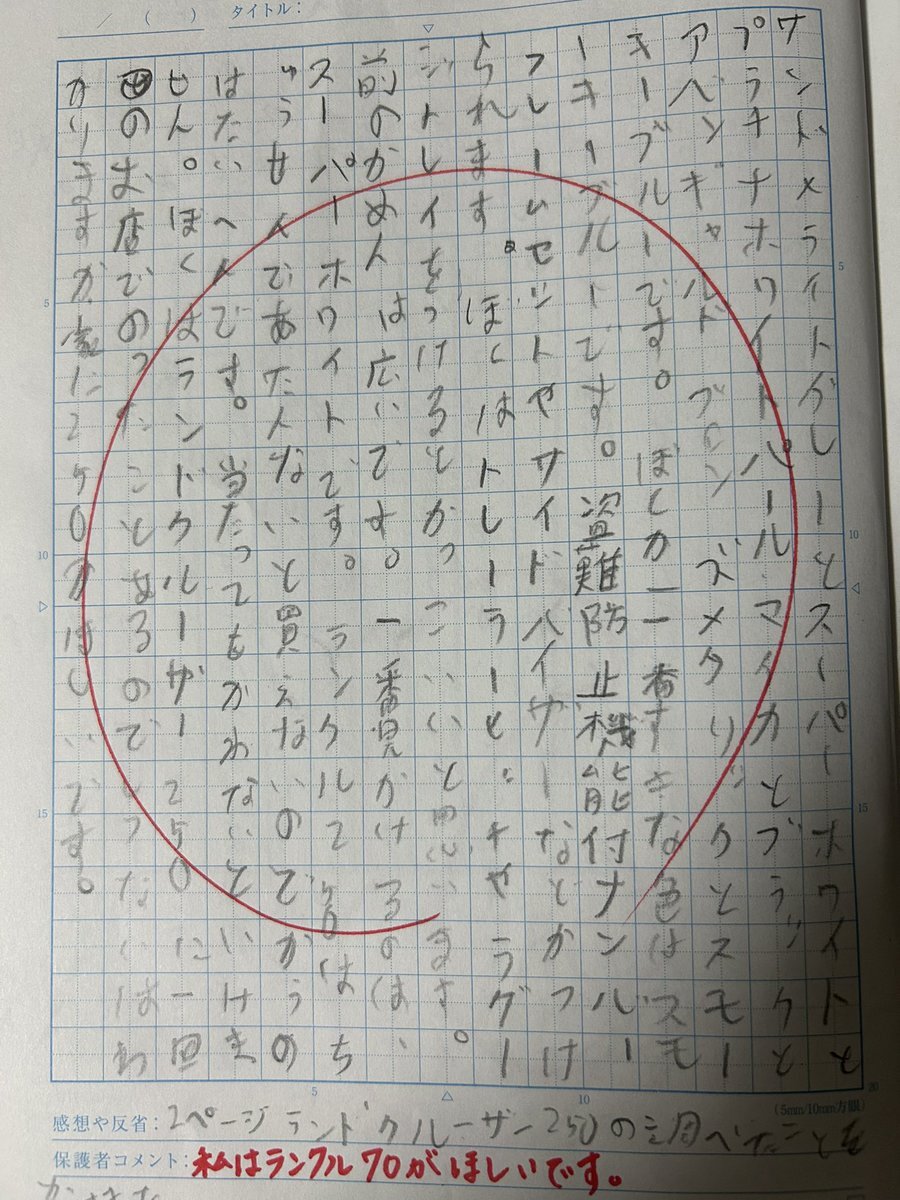 タイトル：
サンドメライトグレーとスーパーホワイトと
プラチナホワイトパールマイカとブラックと
アバンギャルドブロンズメタリックとスモー
キーブルーです。ぼくが一番すきな色はスモ
ーキーブルーです。盗難防止機能付ナンバー
フレームセットやサイドバイザーなどがつけ
られます。ぼくはトレーラーとキャラグー
ジトレイをつけるとかっこいいと思います。
前のがめんは広いです。一番見かけるのは、
スーパーホワイトです。ランクル250はち
ゅうせんであたんないと買えないのでかうの
はたいへんです。当たってもかわないといけま
せん。ぼくはランドクルーザー250に一回
のお店でのったことあるので
かりますが
がほしいです。
5
10
15
20
(5mm/10mm方眼)
感想や反省：2ページランドクルーザー250の
保護者コメント：私はランクル70がほしいです。